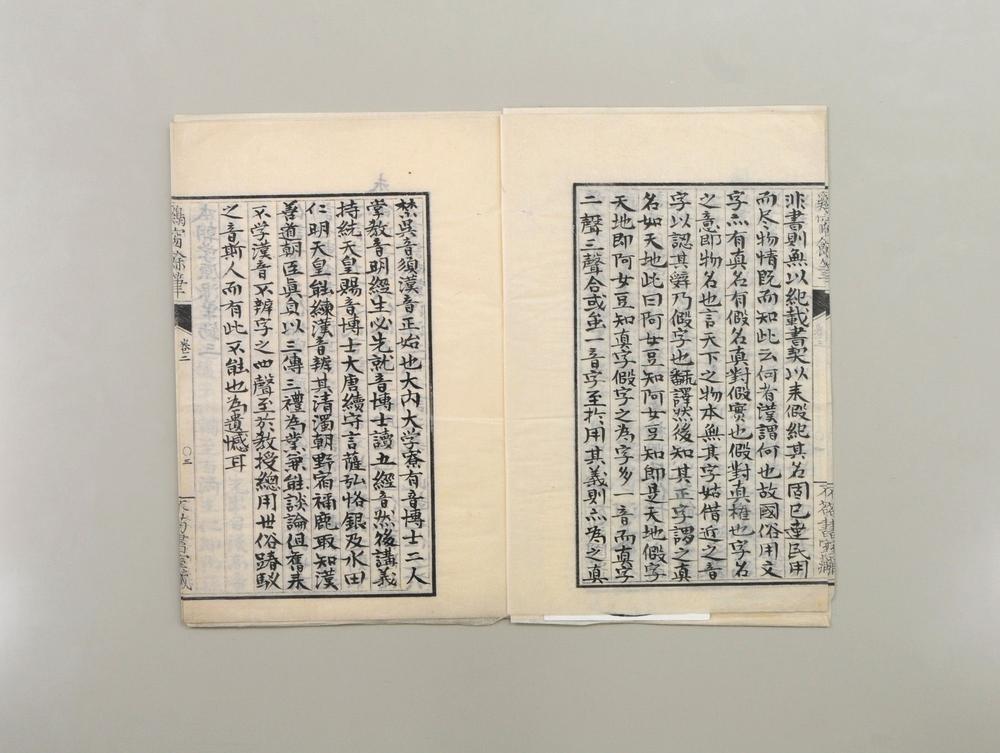 非書則無以紀載書契以来假紀其名固已達民用
而尽物情既而知此云何者漢謂何也故國俗用文
字亦有真名有假名真對假實也假對真権也字名
之意即物名也言天下之物本無其字姑借近之音
字以認其舜乃假字也翻譯然後知其正字謂之真
名如天地此曰阿女豆知阿女豆知即是天地假字
天地即阿女豆知真字假字之為字多一音而真字
二聲三聲合或並一音字至於用其義則亦為之真
禁呉音須漢音正始也大内大学寮有音博士二人
掌教音明經生必先就音博士讀五經音然後講義
持統天皇賜音博士大唐續守言薩弘恪銀及水田
仁明天皇能練漢音辨其清濁朝野宿祢鹿取知漢
善道朝臣眞貞以三傳三禮為業兼能談論但舊来
不学漢音不辨字之四聲至於教授總用世俗踳駁
之音斯人而有此不能也為遺憾耳
鷄窗餘筆
卷二
〇三